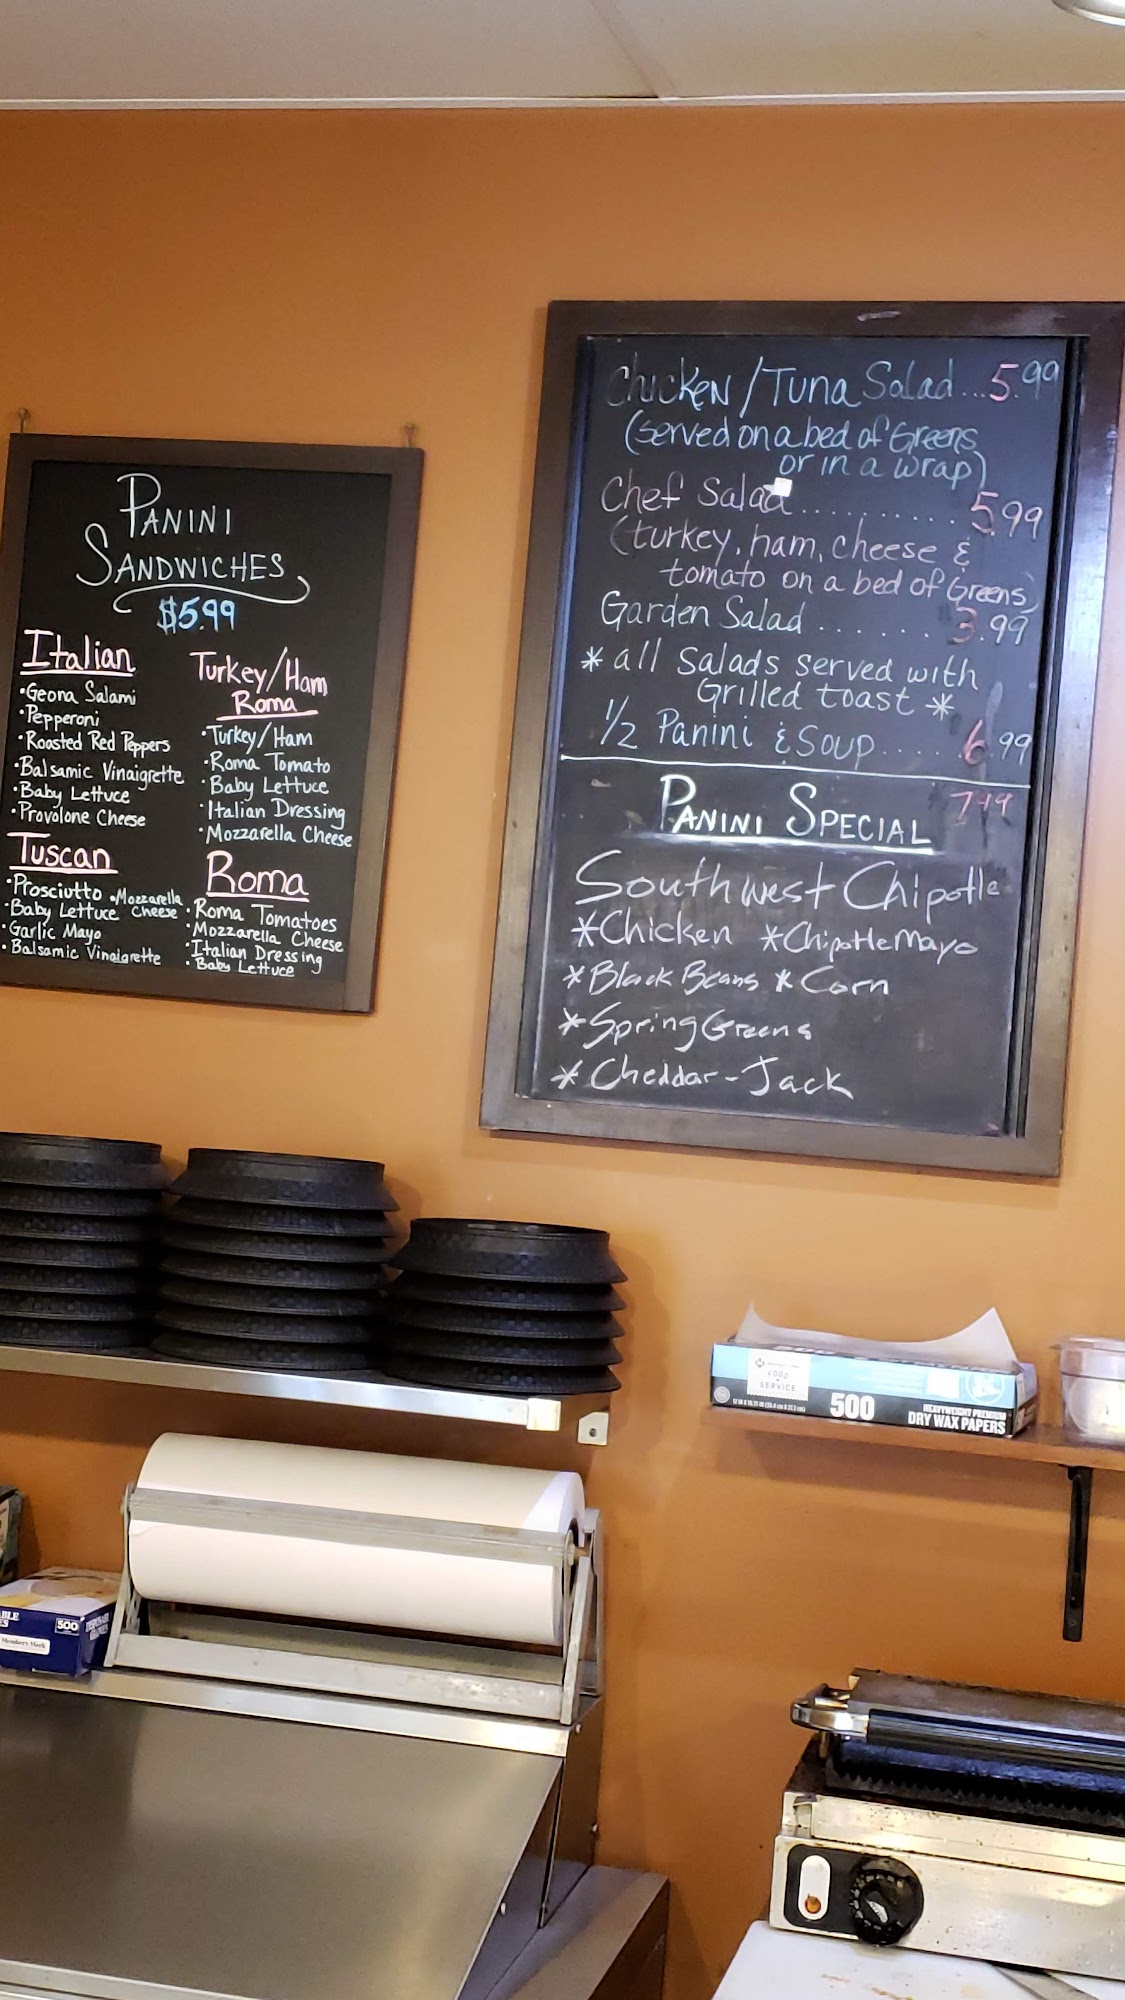 PANINI
SANDWICHES
$5.99
Italian
•Geona Salami
•Pepperoni
•Roasted Red Peppers
•Balsamic Vinaigrette
•Baby Lettuce
•Provolone Cheese
Tuscan
•Prosciutto •Mozzarella
•Baby Lettuce Cheese
•Garlic Mayo
•Balsamic Vinaigrette
Turkey/Ham
Roma
•Turkey/Ham
•Roma Tomato
•Baby Lettuce
•Italian Dressing
•Mozzarella Cheese
Roma
•Roma Tomatoes
•Mozzarella Cheese
•Italian Dressing
•Baby Lettuce
Chicken/Tuna Salad...5.99
(served on a bed of Greens
or in a wrap)
Chef Salad.......... 5.99
(turkey, ham, cheese &
tomato on a bed of Greens)
Garden Salad ....... 3.99
*all Salads served with
Grilled toast*
1/2 Panini & Soup..... 6.99
PANINI SPECIAL 7.49
Southwest Chipotle
*Chicken *Chipotle Mayo
*Black Beans *Corn
*Spring Greens
*Cheddar-Jack
FOOD
SERVICE
500
HEAVYWEIGHT PREMIUM
DRY WAX PAPERS
500
Member's Mark